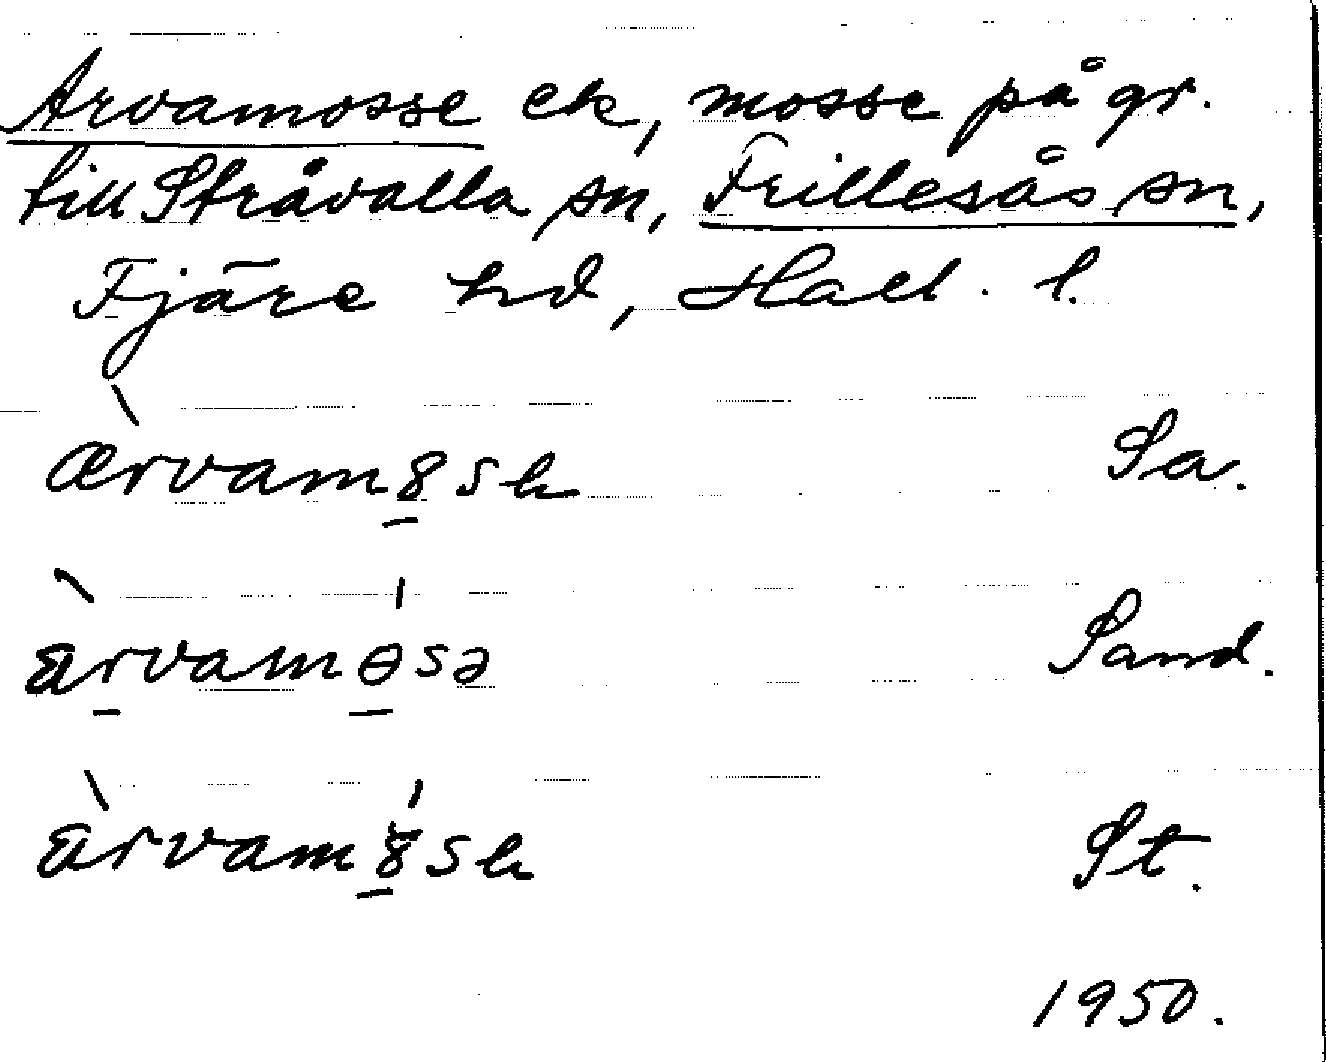 Arvamosse ek, mosse på gr.
till Stråvalla sn, Frillesås sn,
Fjäre hd, Hall. l.
Sa.
Sand.
St.
1950.